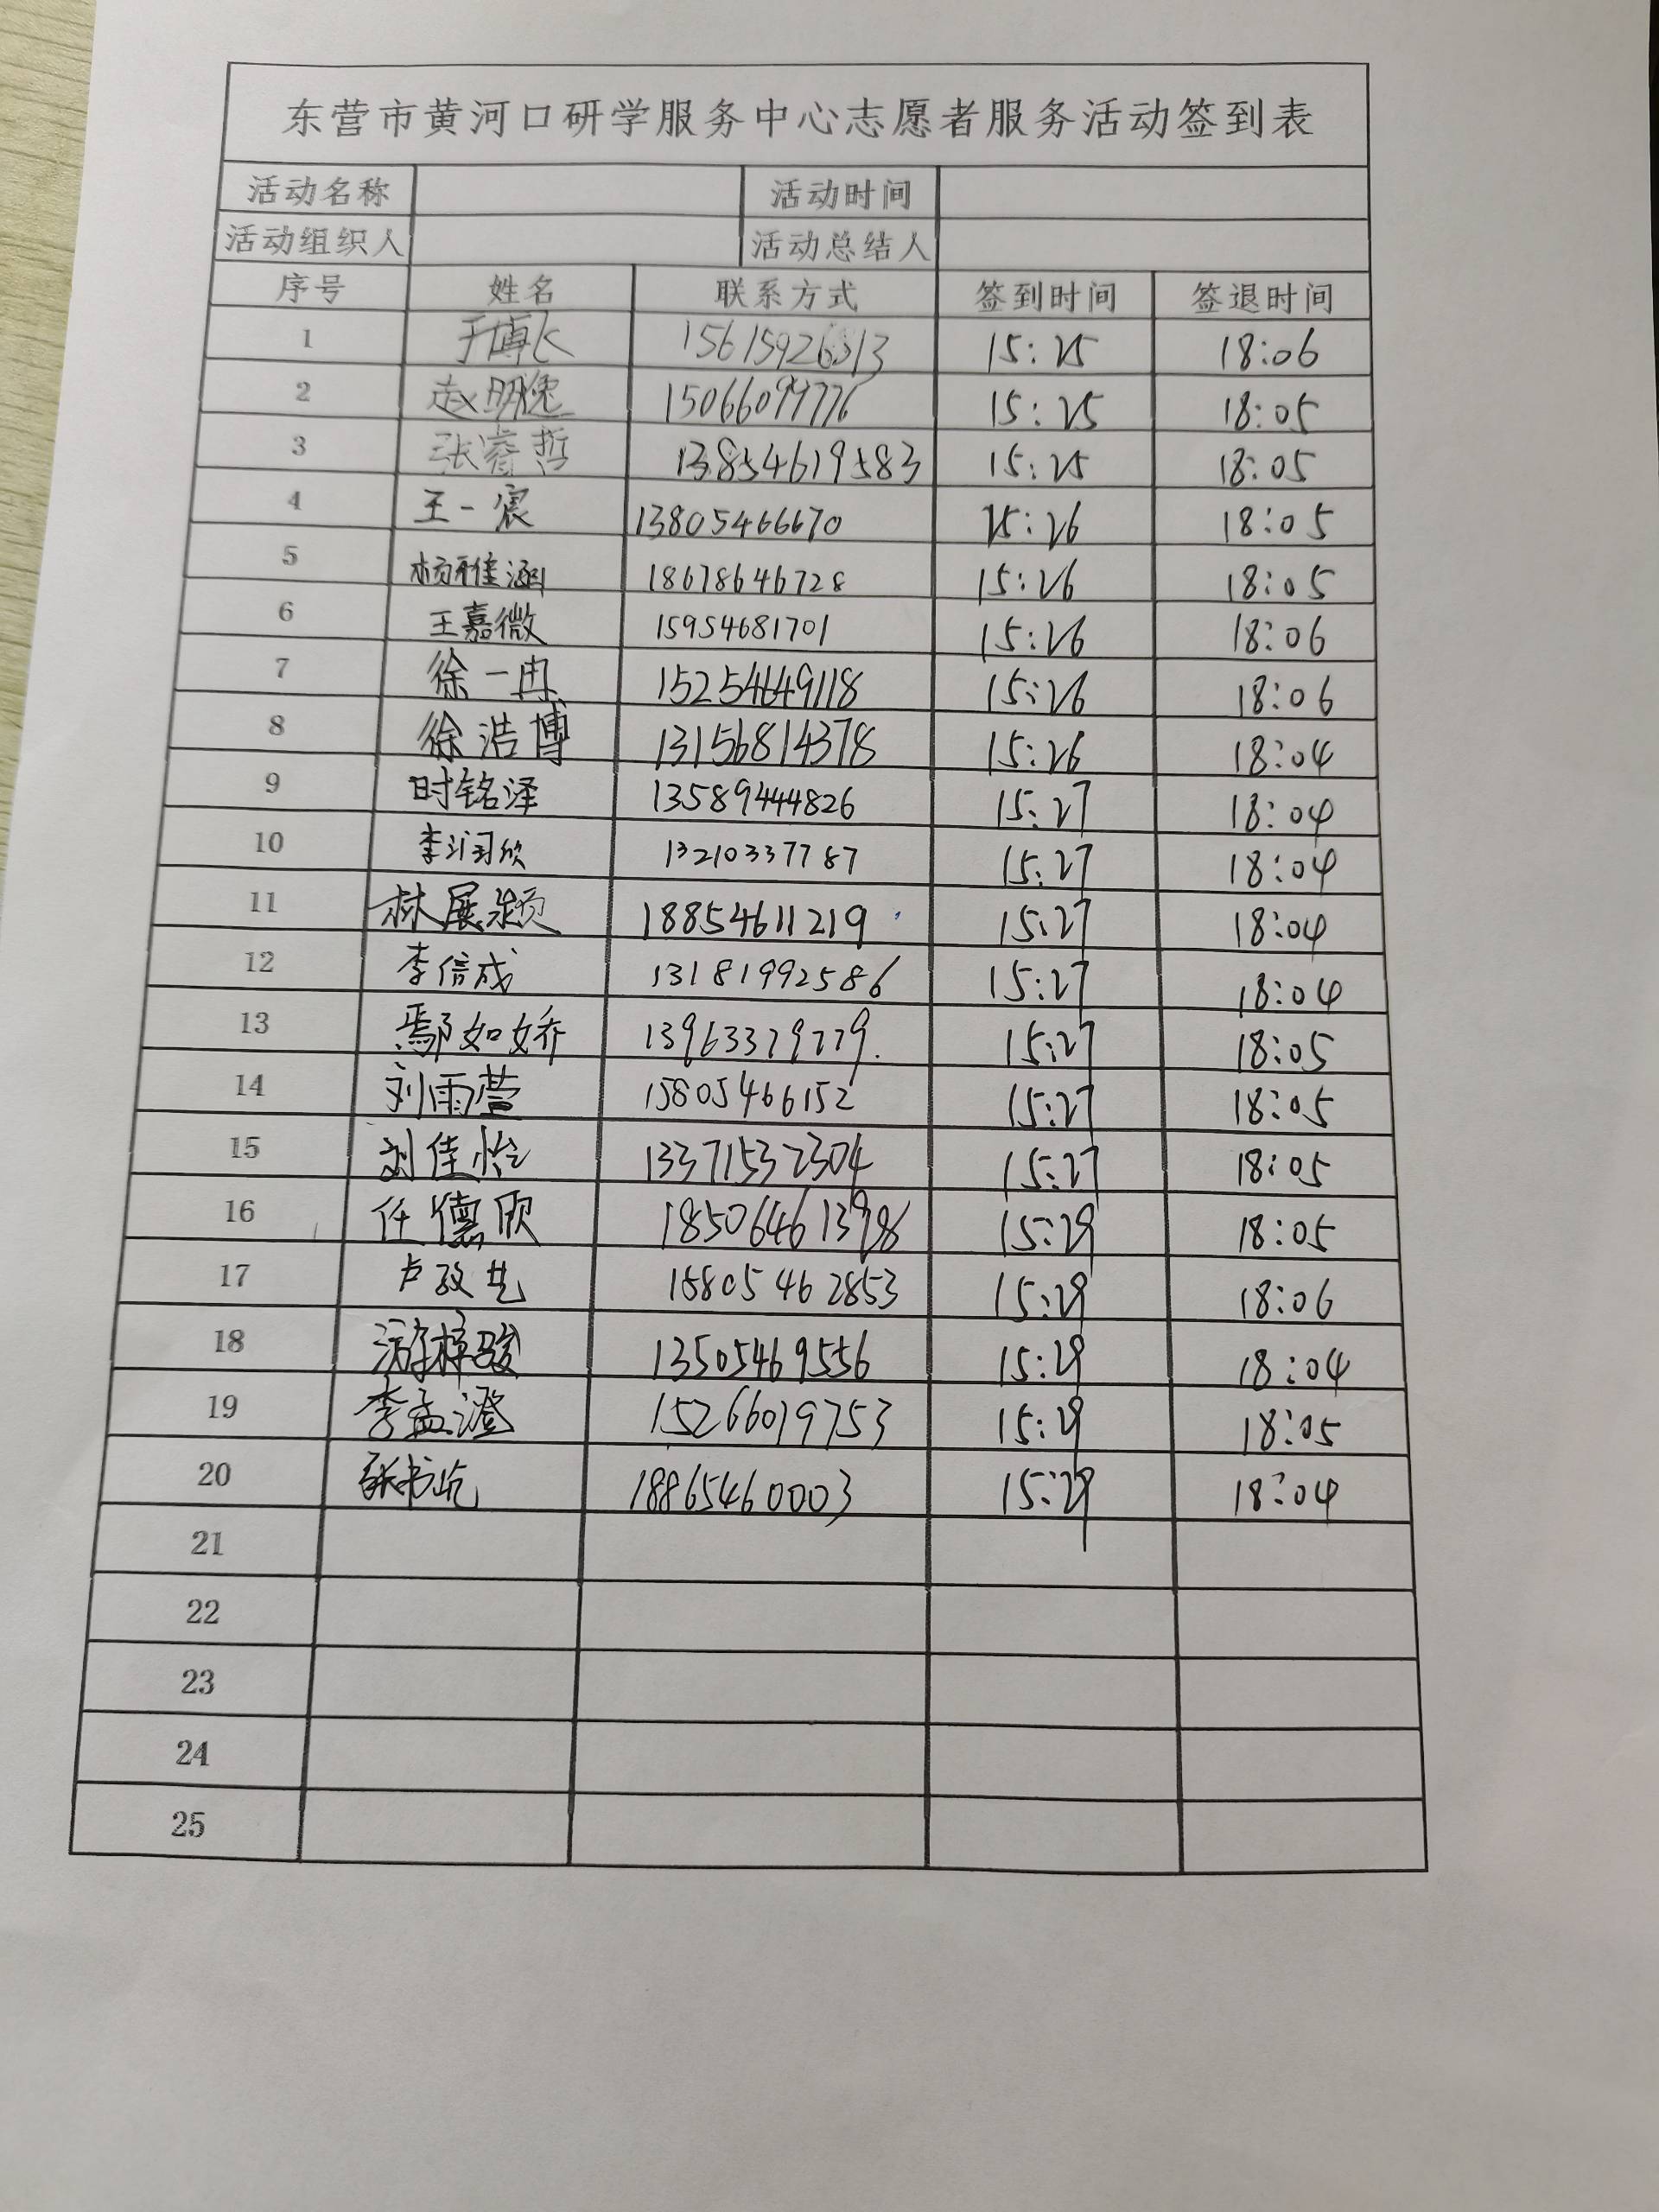 东营市黄河口研学服务中心志愿者服务活动签到表
活动名称 活动时间
活动组织人 活动总结人
序号 姓名 联系方式 签到时间 签退时间
1 于博 15:25 18:06
2 赵明 15066099776 15:25 18:05
3 张睿哲 13854619583 15:25 18:05
4 王一宸 13805466670 15:26 18:05
5 杨雅涵 18678646728 15:26 18:05
6 王嘉微 15954681701 15:26 18:06
7 徐一冉 15254649118 15:26 18:06
8 徐浩博 13156814378 15:26 18:04
9 时铭泽 13589444826 15:27 18:04
10 李润欣 13210337787 15:27 18:04
11 林展颍 18854611219 15:27 18:04
12 李信成 13181992586 15:27 18:04
13 鄢如娇 13963379779. 15:27 18:05
14 刘雨萱 15805466152 15:27 18:05
15 刘佳怡 13371532304 15:27 18:05
16 任德欣 15:29 18:05
17 卢孜艺 15805462853 15:29 18:06
18 游梓骏 13505469556 15:29 18:04
19 李孟澄 15266019753 15:29 18:05
20 张书屹 18865460003 15:29 18:04
21
22
23
24
25